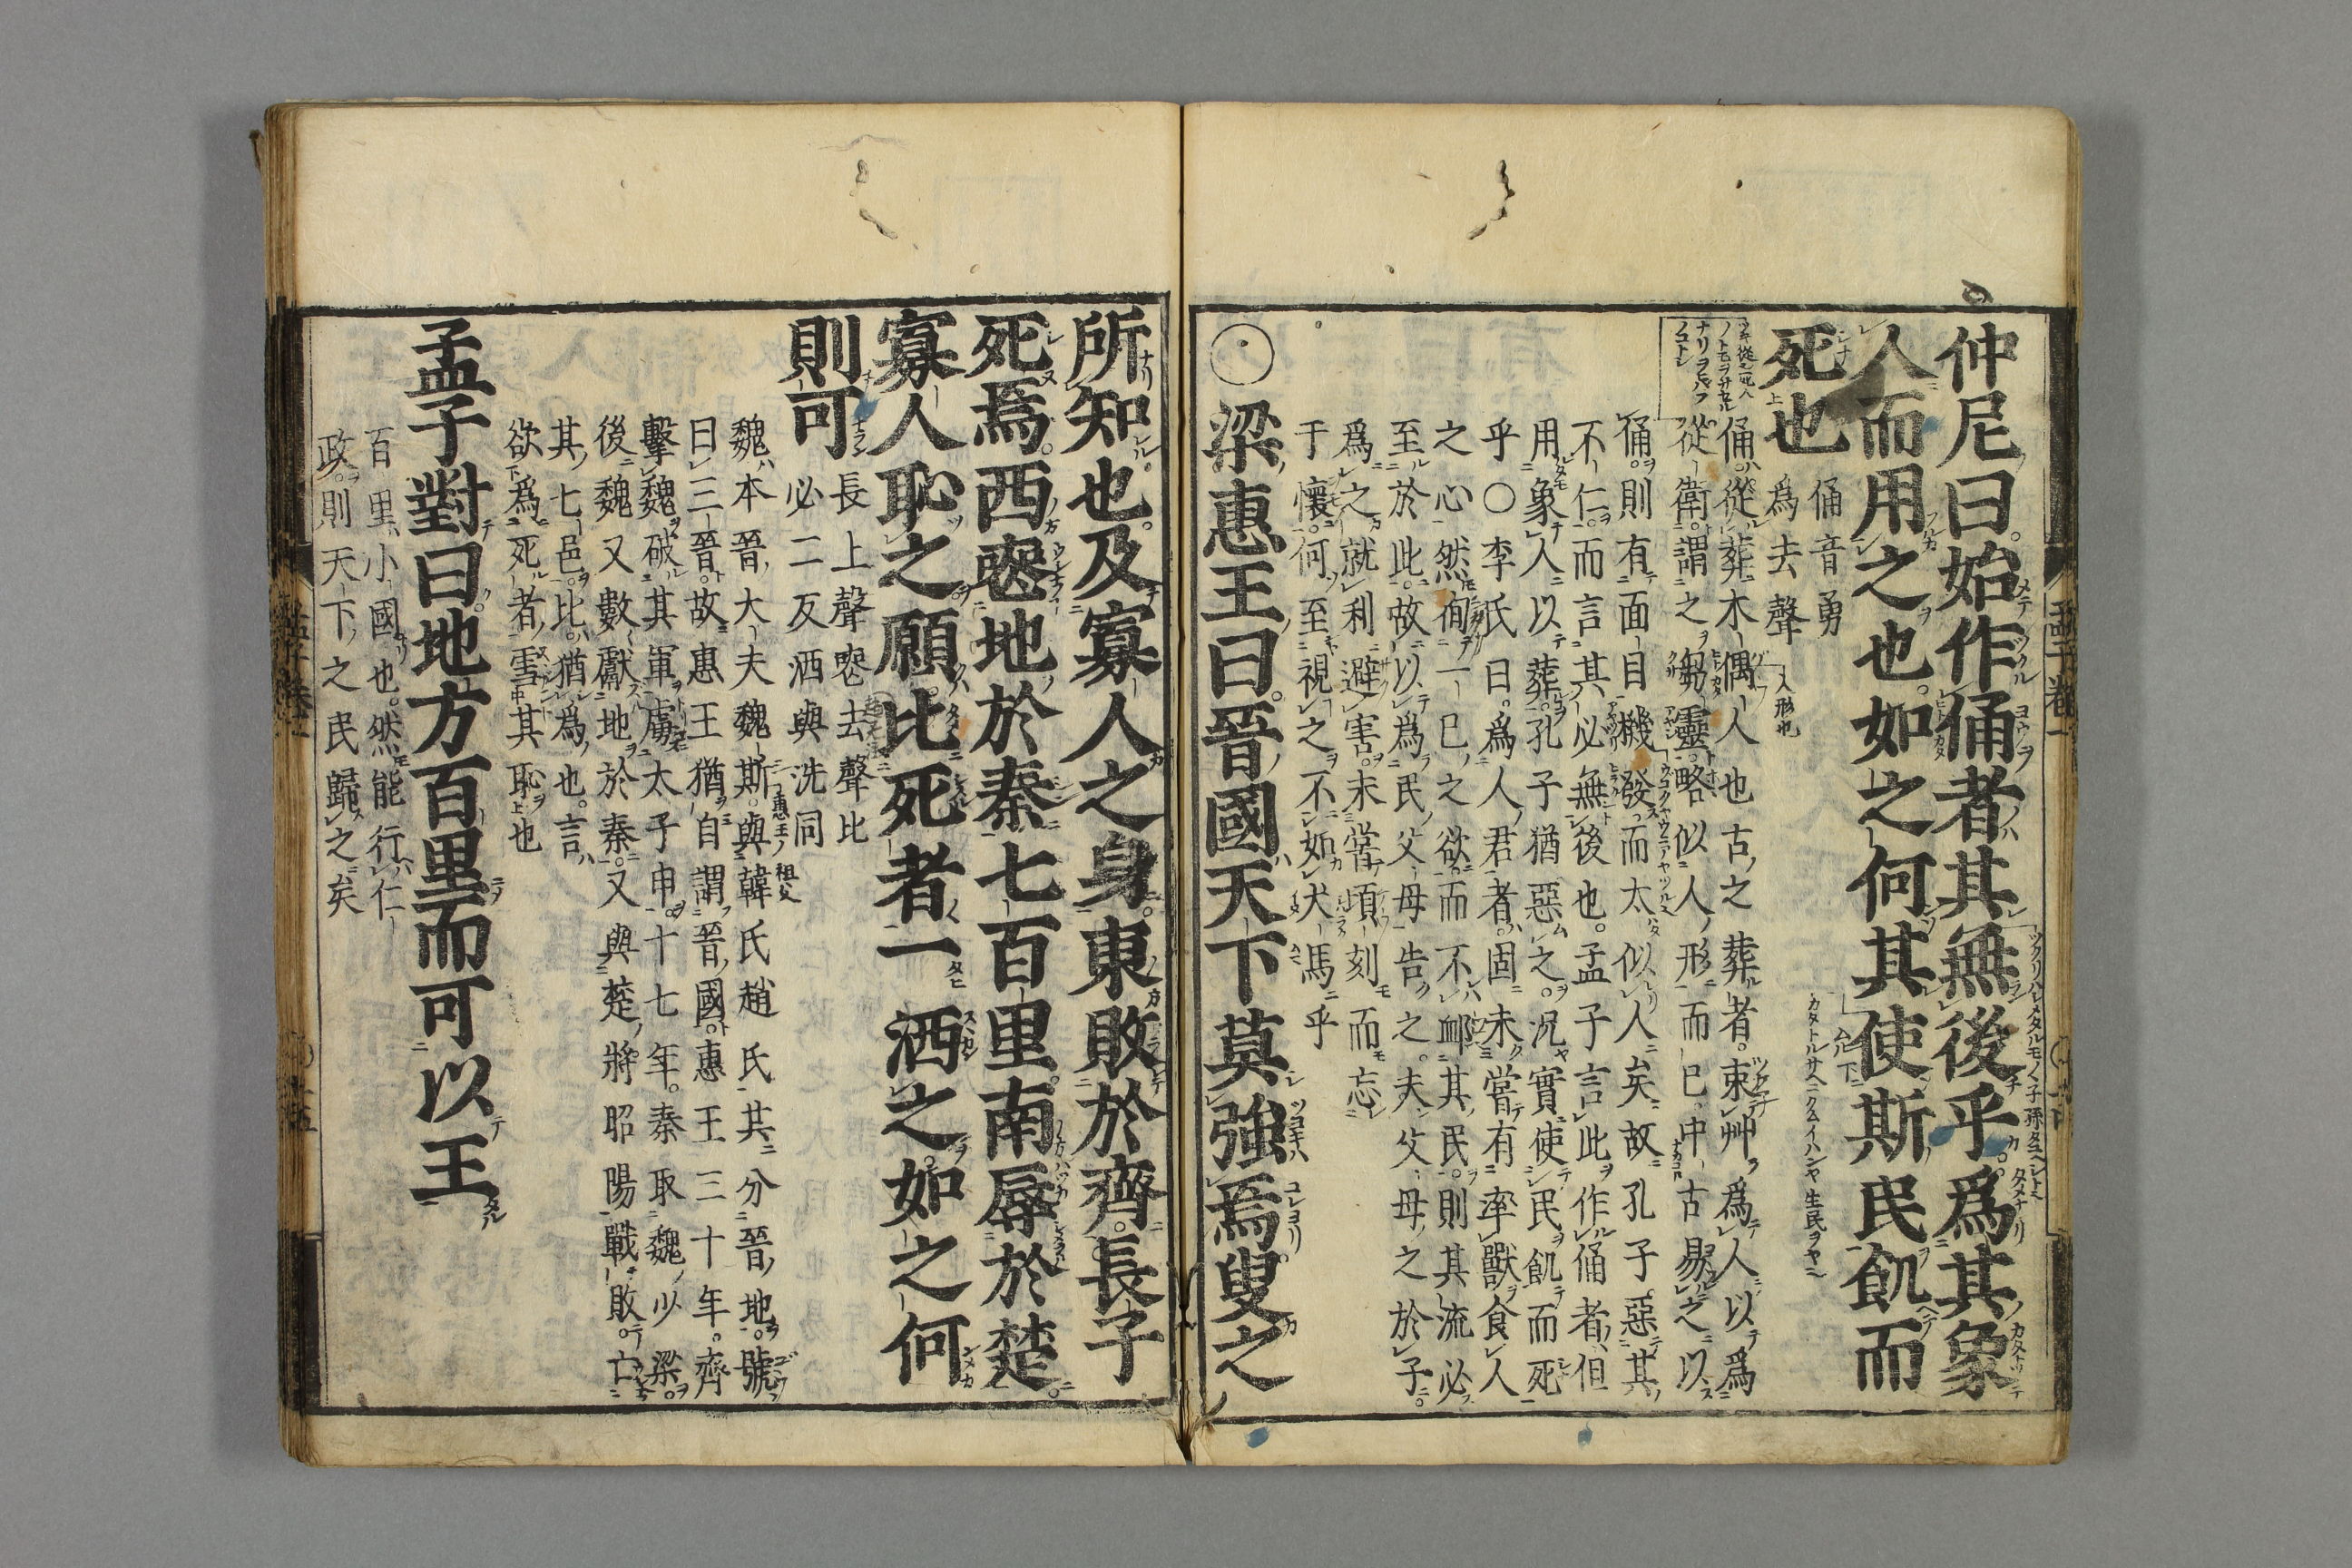 仲尼曰始作俑者其無後乎爲其象
人而用之也如之何其使斯民飢而
死也
俑音勇
爲去聲
俑從葬木偶人也古之葬者束艸爲人以爲
從衛謂之芻靈略似人形而已中古易之以
俑則有面目機發而太似人矣故孔子惡其
不仁而言其必無後也孟子言此作俑者但
用象人以葬孔子猶惡之況實使民飢而死
乎○李氏曰爲人君者固未嘗有率獸食人
之心然徇一己之欲而不衈其民則其流必
至於此故以爲民父母告之夫父母之於子
爲之就利避害未嘗頃刻而忘
于懷何至視之不如犬馬乎
○梁惠王曰晉國天下莫強焉叟之
所知也及寡人之身東敗於齊長子
死焉西喪地於秦七百里南辱於楚
寡人恥之願比死者一洒之如之何
則可
長上聲喪去聲比
必二反洒與洗同
魏本晉大夫魏斯與韓氏趙氏共分晉地號
曰三晉故惠王猶自謂晉國惠王三十年齊
擊魏破其軍虜太子申十七年秦取魏少梁
後魏又數獻地於秦又與楚將昭陽戰敗亡
其七邑比猶爲也言
欲爲死者雪其恥也
孟子對曰地方百里而可以王
百里小國也然能行仁
政則天下之民歸之矣